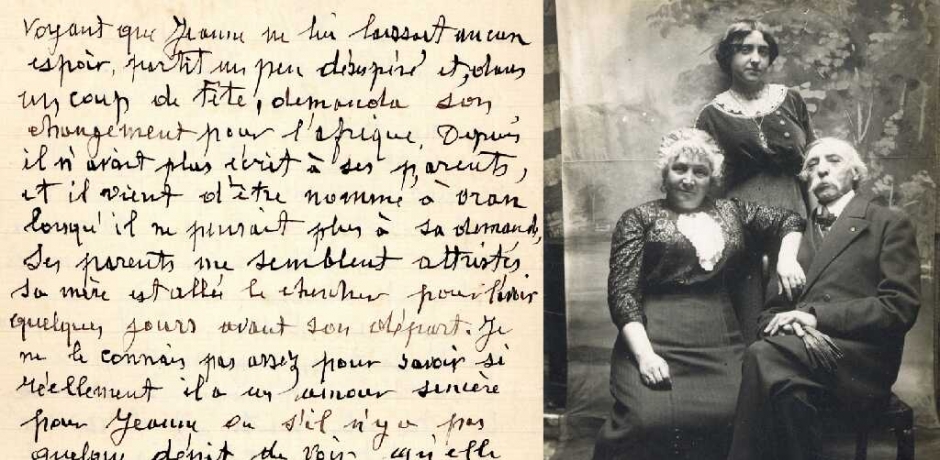 Voyant que Jeanne ne lui laissait aucun
espoir, partit un peu désespéré et, dans
un coup de tête, demanda son
changement pour l'afrique. Depuis
il n'avait plus écrit à ses parents,
et il vient d'être nommé à oran
lorsqu'il ne pensait plus à sa demande,
Ses parents me semblent attristés
sa mère est allée le chercher pour l'avoir
quelques jours avant son départ. Je
ne le connais pas assez pour savoir si
réellement il a un amour sincère
pour Jeanne ou s'il n'y a pas
quelque dépit de voir qu'elle